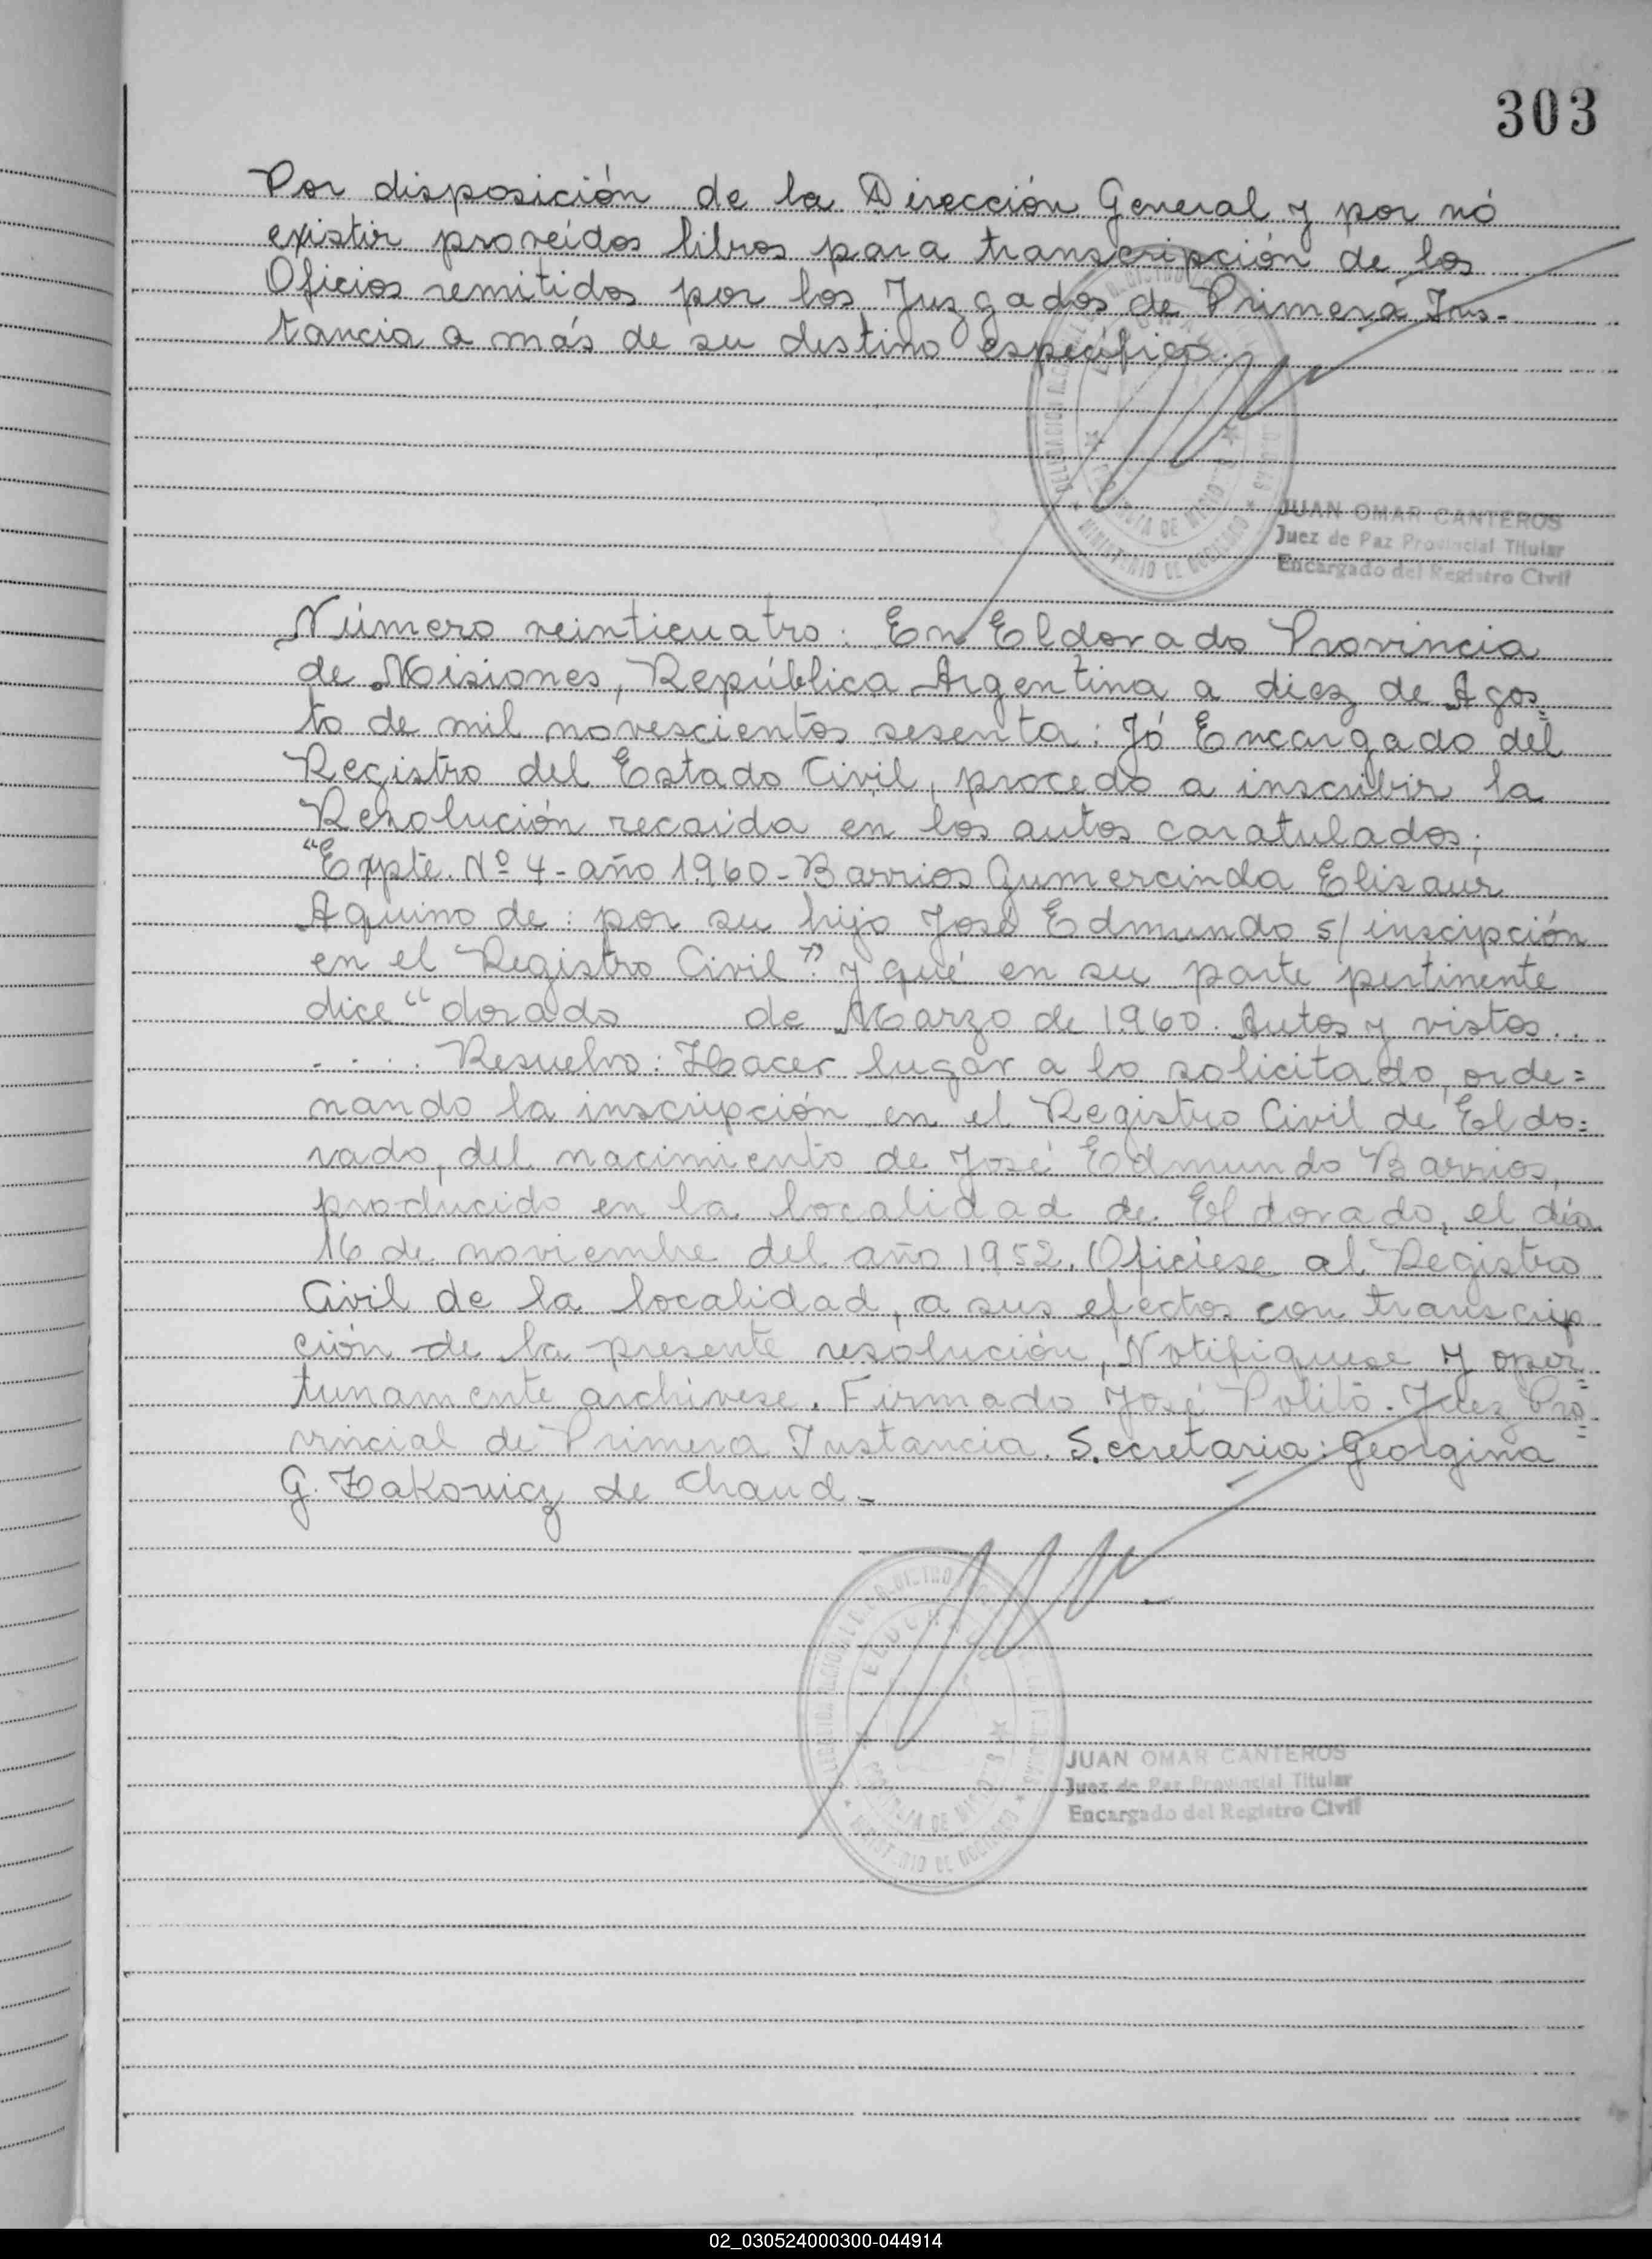 303
Por disposición de la Dirección General y por nó
existir proveídos libros para transcripción de los
Oficios remitidos por los Juzgados de Primera Ins-
tancia a más de su destino específico.
JUAN OMAR CANTEROS
Juez de Paz Provincial Titular
Encargado del Registro Civil
Número veinticuatro: En Eldorado Provincia
de Misiones, República Argentina a diez de Agos=
to de mil novescientos sesenta: Jó Encargado del
Registro del Estado Civil, procedo a inscribir la
Resolución recaída en los autos caratulados;
"Expte. Nº 4 - año 1960 - Barrios Gumercinda Elisaur
Aquino de: por su hijo José Edmundo s/ inscipción
en el Registro Civil" y qué en su parte pertinente
dice "dorado de Marzo de 1960. Autos y vistos...
..... Resuelvo: Hacer lugar a lo solicitado, orde=
nando la inscripción en el Registro Civil de Eldo=
rado, del nacimiento de José Edmundo Barrios,
producido en la localidad de Eldorado, el día
16 de noviembre del año 1952. Oficiese al Registro
Civil de la localidad, a sus efectos con transcrip
ción de la presente resolución, Notifiquese y opor=
tunamente archivese. Firmado José Politó. Juez Pro=
vincial de Primera Instancia. Secretaria: Georgina
G. Zakowicz de Chaud.-
ELDORADO
JUAN OMAR CANTEROS
Juez de Paz Provincial Titular
Encargado del Registro Civil
02_030524000300-044914